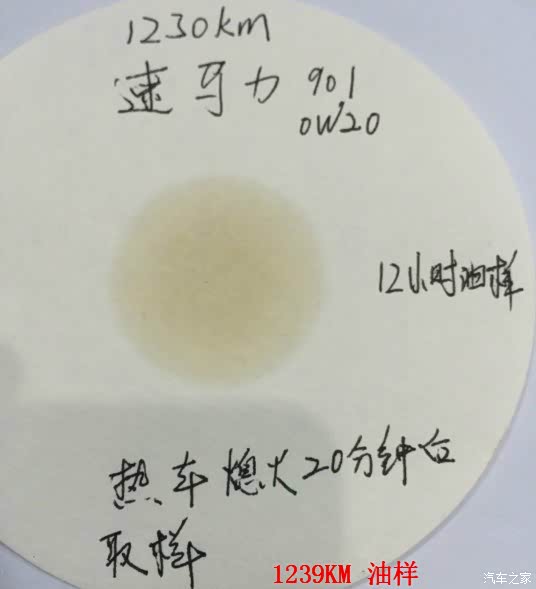 1230km
速马力 901
0W20
12小时油样
热车熄火20分钟后
取样
1239KM 油样
汽车之家